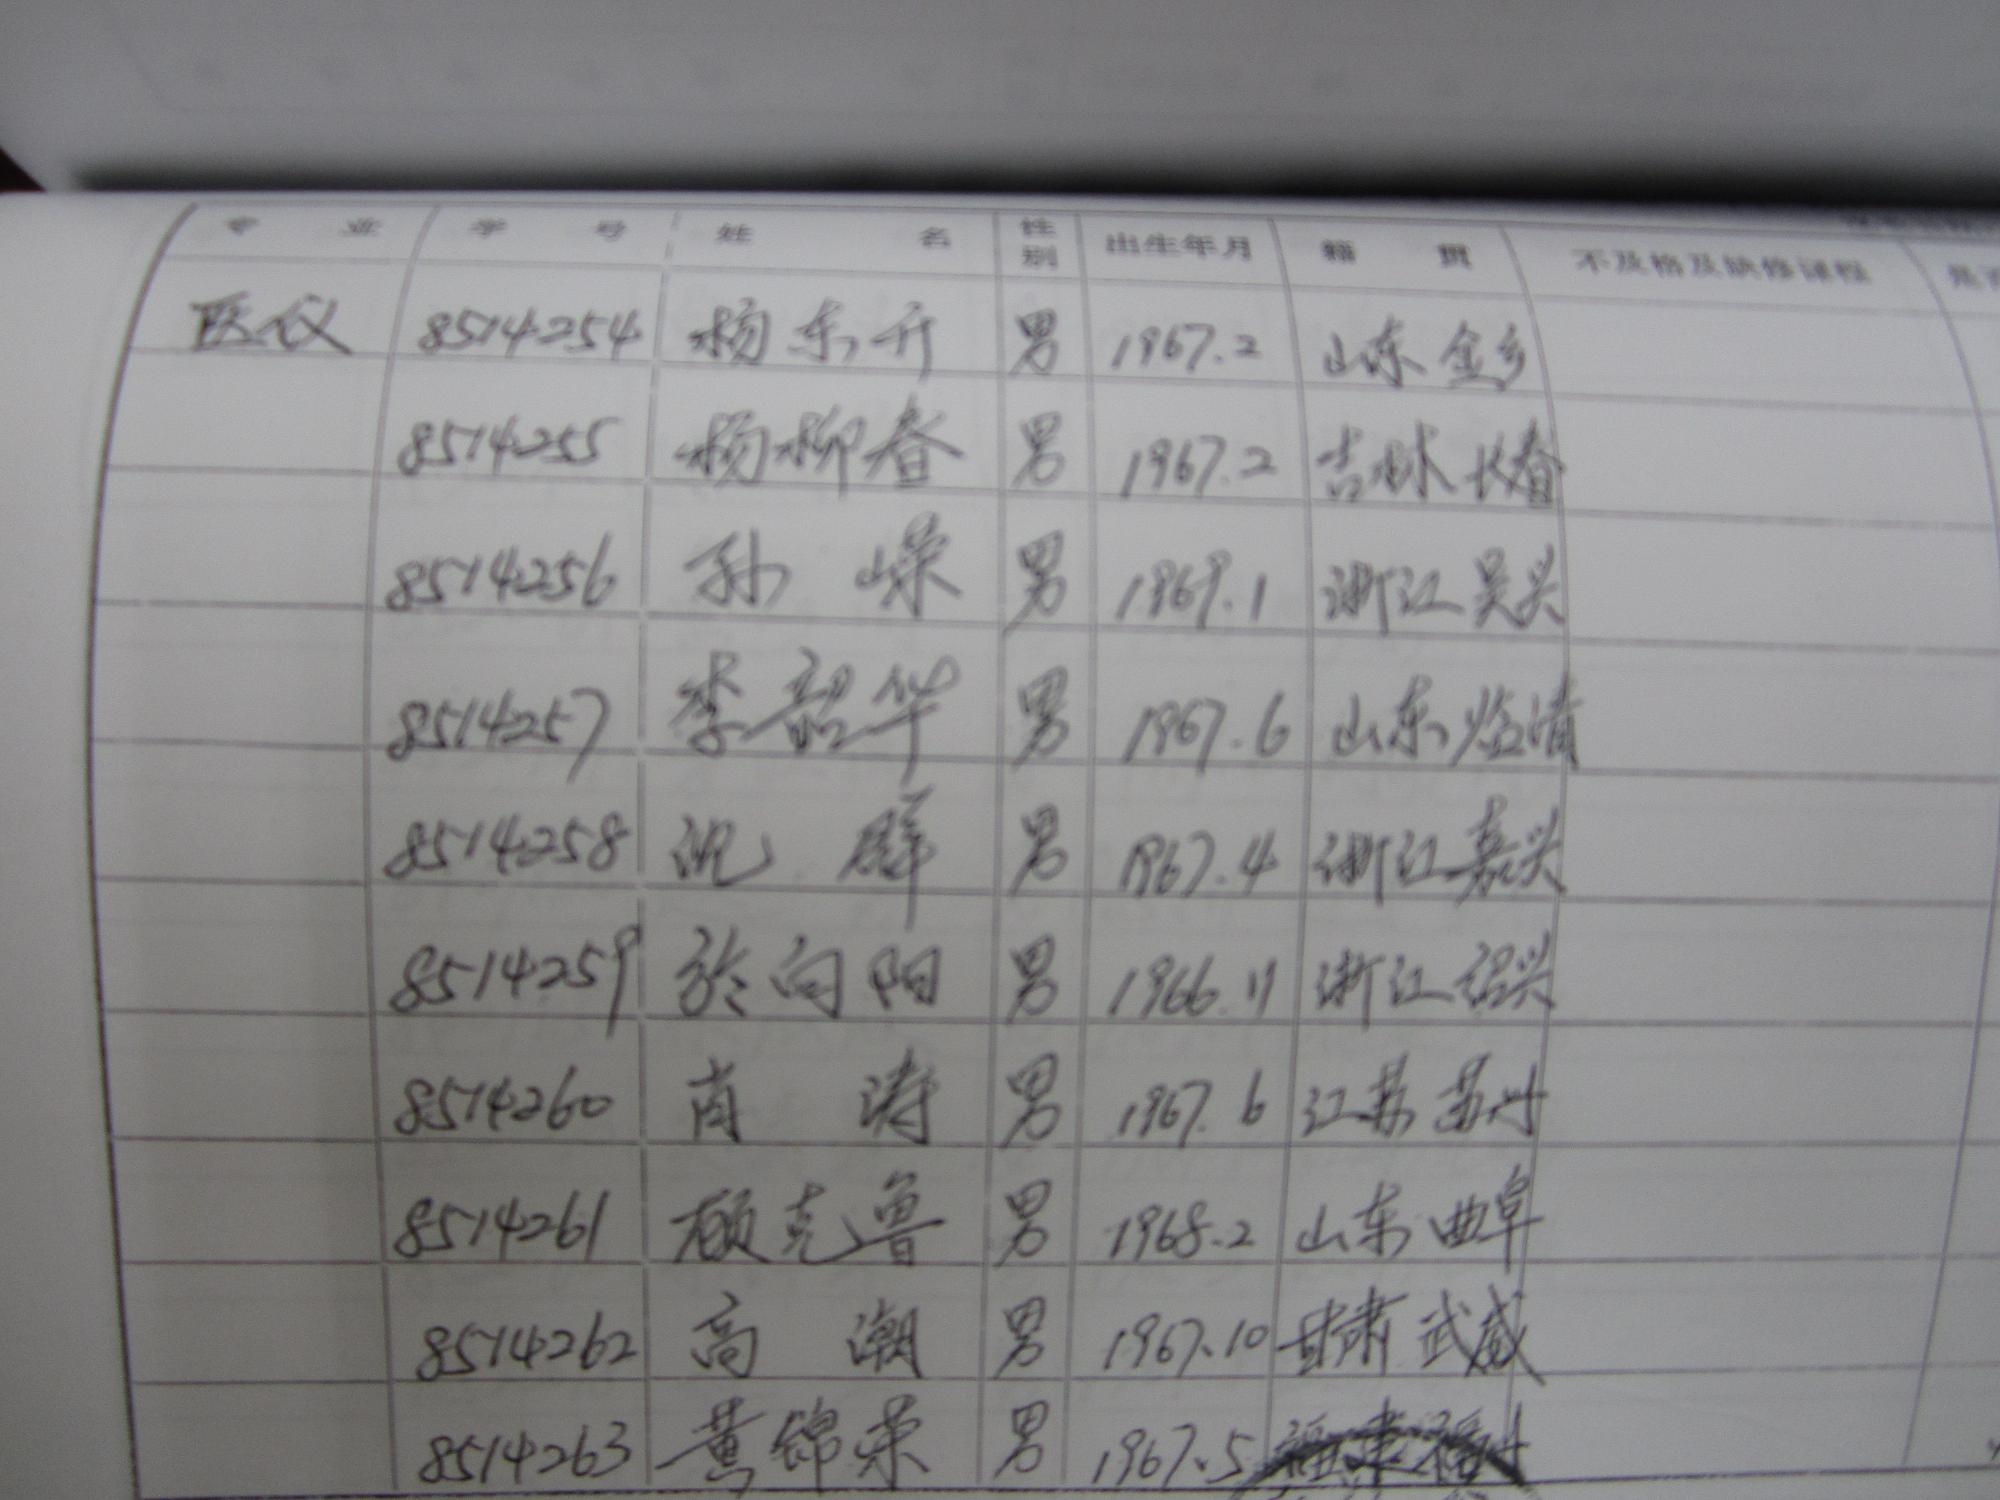 专 业 学 号 姓 名 性别 出生年月 籍 贯 不及格及缺修课程 是否
医仪 8514254 杨东升 男 1967.2 山东 金乡
8514255 杨柳春 男 1967.2 吉林 长春
8514256 孙 嵘 男 1969.1 浙江 吴兴
8514257 李韶华 男 1967.6 山东 临清
8514258 沈 群 男 1967.4 浙江 嘉兴
8514259 於向阳 男 1966.11 浙江 绍兴
8514260 肖 涛 男 1967.6 江苏 苏州
8514261 顾克鲁 男 1968.2 山东 曲阜
8514262 高 潮 男 1967.10 甘肃 武威
8514263 黄锦荣 男 1967.5 福建 福州